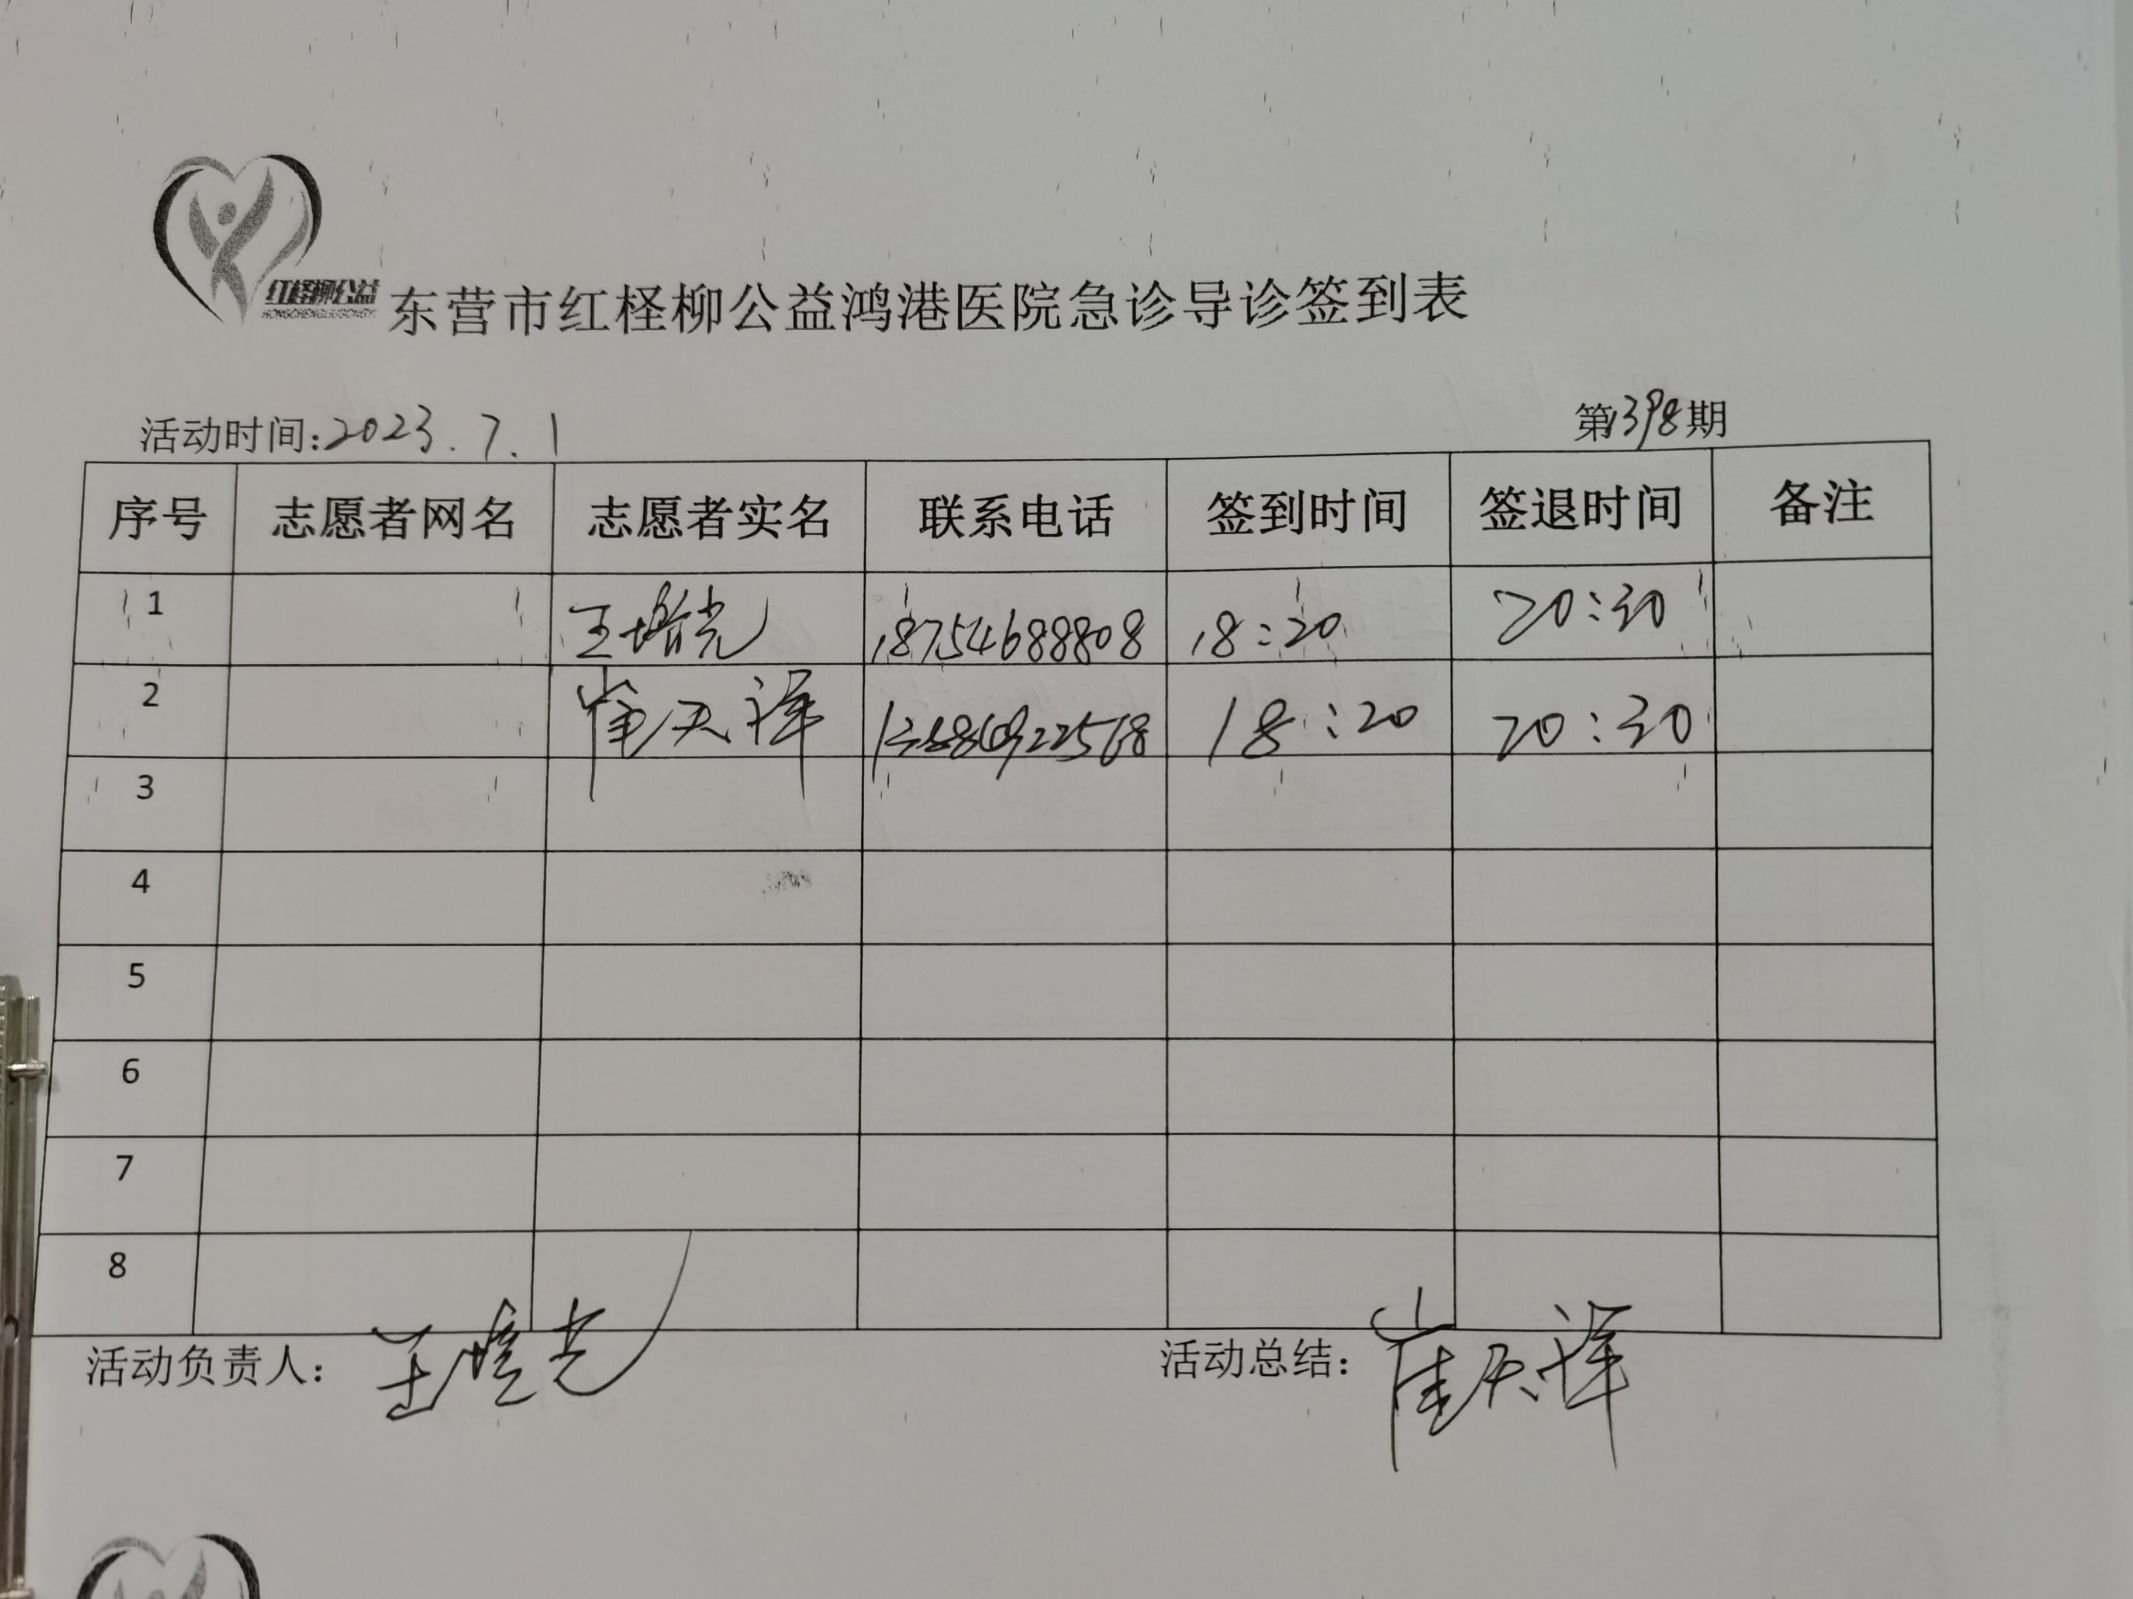 红柽柳公益
东营市红柽柳公益鸿港医院急诊导诊签到表
活动时间:2023.7.1 第1398期
序号 志愿者网名 志愿者实名 联系电话 签到时间 签退时间 备注
1 18754688808 18:20 20:30
2 崔天泽 18:20 20:30
3
4
5
6
7
8
活动负责人: 活动总结: 崔天泽